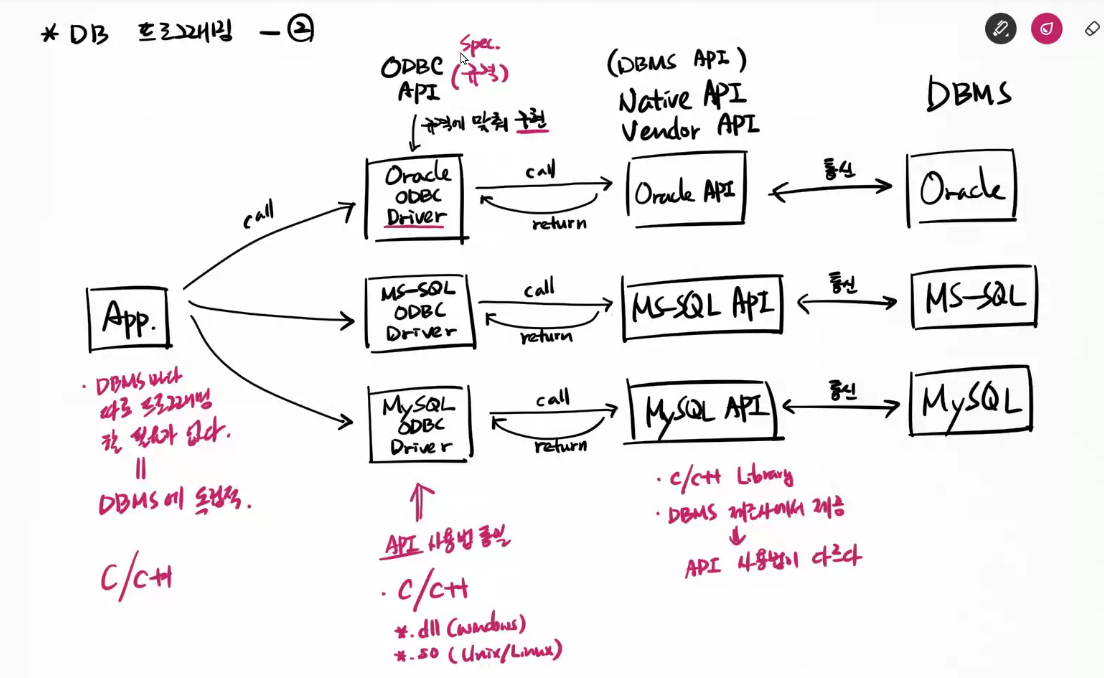 * DB 프로그래밍 - ②
Spec.
ODBC
API
(규격)
규격에 맞춰 구현
(DBMS API)
Native API
Vendor API
DBMS
call
Oracle
ODBC
Driver
call
return
Oracle API
통신
Oracle
App.
MS-SQL
ODBC
Driver
call
return
MS-SQL API
통신
MS-SQL
MySQL
ODBC
Driver
call
return
MySQL API
통신
MySQL
· DBMS 마다
따로 프로그래밍
할 필요가 없다.
=
DBMS에 독립적.
C/C++
API 사용법 통일
· C/C++
*.dll (windows)
*.so (Unix/Linux)
· C/C++ Library
· DBMS 제조사에서 제공
API 사용법이 다르다